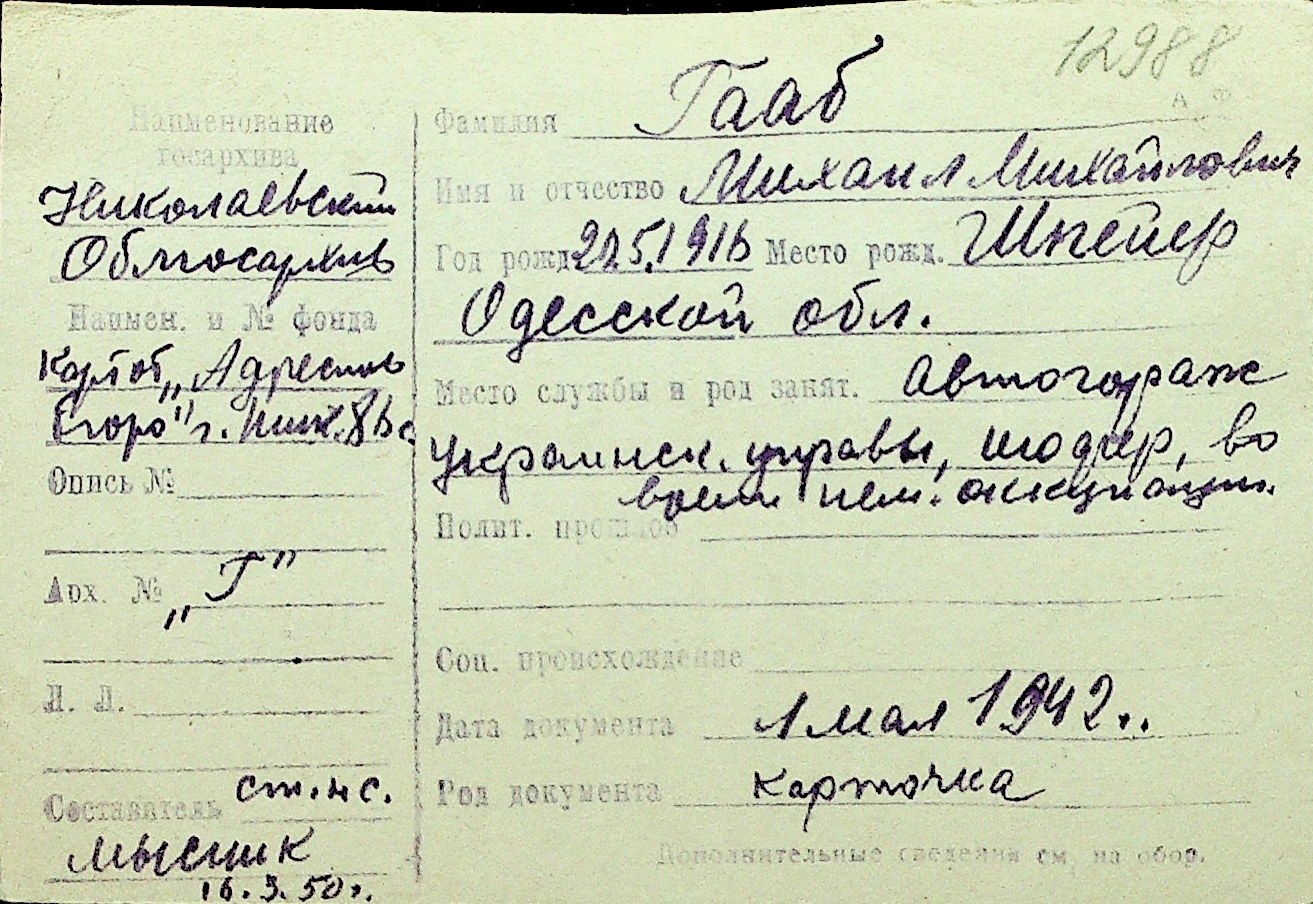 12988
А Ф
Наименование
госархива
Николаевский
Облгосархив
Наимен. и № фонда
Картот. „Адресное
бюро" г. Ник.
Опись №
Арх. № „Г"
Л. Л.
Составитель ст. н с.
Мысник
16.3.50г.
Фамилия Гааб
Имя и отчество Михаил Михайлович
Год рожд. 5.1916 Место рожд. Шпейер
Одесской обл.
Место службы и род занят. автогараж
Украинск. управы, шофер, во
время нем. оккупации.
Полит. прошлое
Соц. происхождение
Дата документа 1 мая 1942..
Род документа карточка
Дополнительные сведения см. на обор.